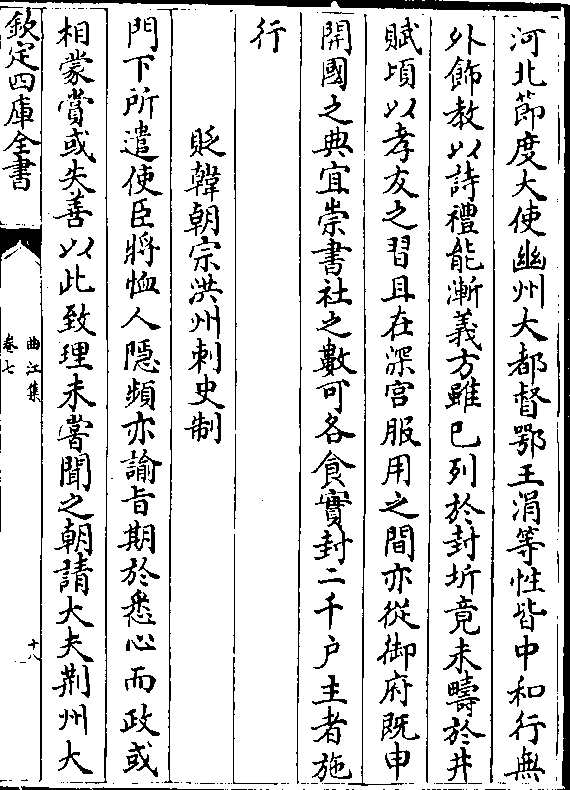 河北節度大使幽州大都督鄂王涓等性皆中和行無
外飾教以詩禮能漸義方雖已列於封圻竟未疇於井
賦頃以孝友之習且在深宫服用之間亦從御府既申
開國之典宜崇書社之數可各食實封二千户主者施
行
貶韓朝宗洪州刺史制
門下所遣使臣將恤人隱頻亦諭旨期於悉心而政或
相蒙賞或失善以此致理未嘗聞之朝請大夫荆州大
欽定四庫全書
曲江集
卷七
十八